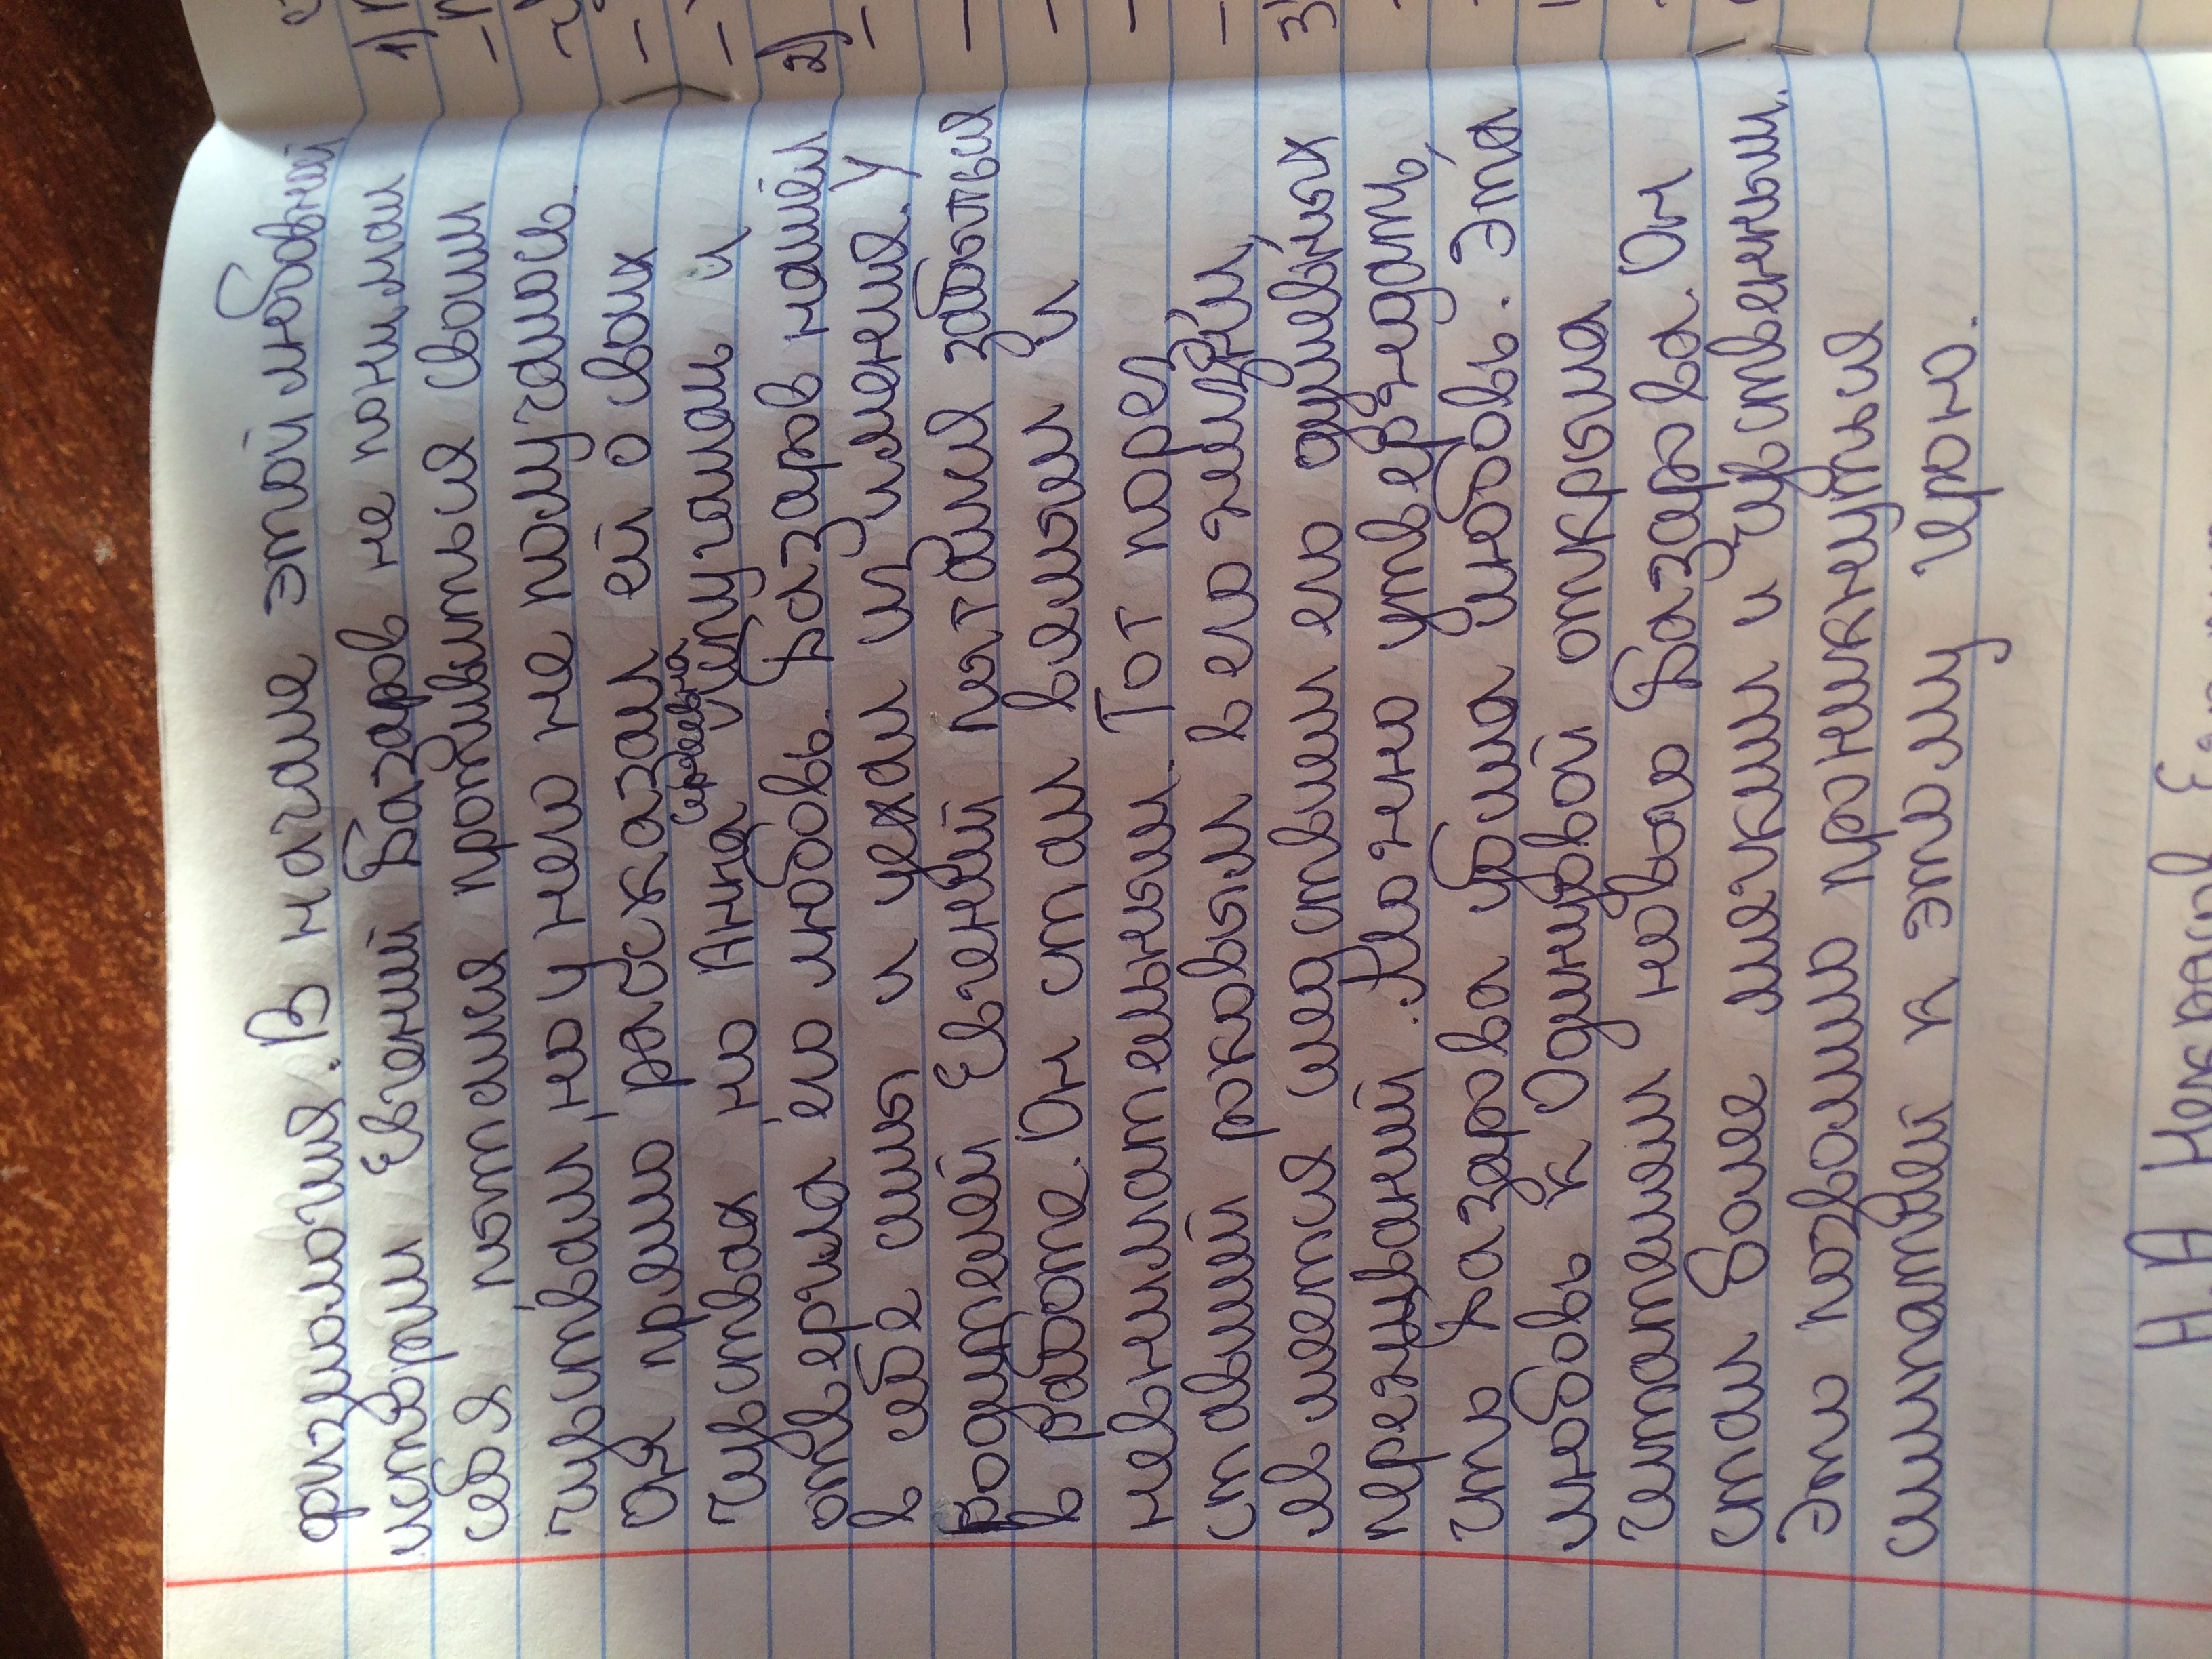 физиология. В начале этой любовной
истории Евгений Базаров не понимал
себя, пытался противиться своим
чувствам, но у него не получалось.
Он прямо рассказал ей о своих
чувствах, но Анна Сергеевна испугалась и
отвергла его любовь. Базаров нашёл
в себе силы и уехал из имения. У
родителей Евгений пытался забыться
в работе. Он стал вялым и
невнимательным. Тот порез,
ставший роковым в его жизни,
является следствием его душевных
переживаний. Можно утверждать,
что Базарова убила любовь. Эта
любовь к Одинцовой открыла
читателям нового Базарова. Он
стал более мягким и чувственным.
Это позволило проникнуться
симпатией к этому герою.
Н.А Некрасов
1)
2)
3)